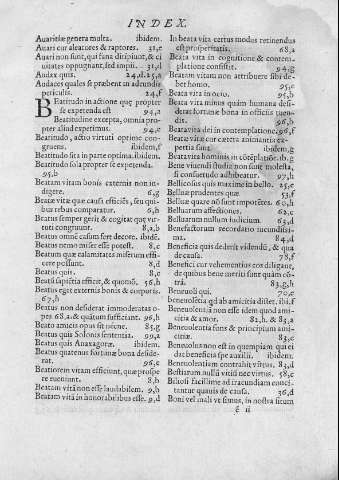 INDEX
Auaritiæ genera multa. ibidem.
Auari cur aleatores & raptores. 31,c
Auari non sunt, qui fana diripiunt, & ci
uitates oppugnant, sed impii. 31,d
Audax quis. 24,d.25,a
Audaces quales se præbent in adeundis
periculis. 24,f
BEatitudo in actione quæ propter
se expetenda est 94,a
Beatitudine excepta, omnia pro-
pter aliud expetimus. 94,e
Beatitudo, actio virtuti optimæ con-
gruens. ibidem,f
Beatitudo sita in parte optima. ibidem.
Beatitudo sola propter se expetenda.
95,b
Beatam vitam bonis externis non in-
digere. 6,g
Beatæ vitæ quæ causæ efficiēs, seu qui-
bus rebus comparatur. 6,h
Beatus semper gerit & cogitat quæ vir-
tuti congruunt. 8,a,b
Beatus omnē casum fert decorè. ibidē.
Beatus nemo miser esse potest. 8,c
Beatum quæ calamitates miserum effi-
cere possunt. 8,d
Beatus quis. 8,e
Beatū sapientia efficit, & quomō. 56,h
Beatus eget externis bonis & corporis.
67,h
Beatus non desiderat immoderatas o-
pes 68,a.& quātum sufficiant. 96,h
Beato amicis opus sit nécne. 85,g
Beatus quis Solonis sententia. 99,a
Beatus quis Anaxagoræ. ibidem.
Beatus quatenus fortunæ bona deside-
rat. 96,e
Beatiorem vitam efficiunt, quæ prospe
rè eueniunt. 8,b
Beatam vitā non esse laudabilem. 9,b
Beatam vitā in honorabilibus esse. 9,d
In beata vita certus modus retinendus
est prosperitatis. 68,a
Beata vita in cogitatione & contem-
platione consistit. 94,g
Beatam vitam non attribuere sibi de-
bet homo. 95,e
Beata vita in ocio. 95,b
Beata vita minus quàm humana desi-
derat fortunæ bona in officiis tuen-
dis. 96,b
Beata vita dei in contemplatione. 96,f
Beatæ vitæ cur cætera animantia ex-
pertia sunt. ibidem,g
Beata vita hominis in cōtēplatiōe. ib. g
Bene viuendi studia non sunt molesta,
si consuetudo adhibeatur. 97,h
Bellicosus quis maxime in bello. 25,e
Belluæ prudentes quæ 53,f
Belluæ quare nō sunt impotētes. 60,h
Belluarum affectiones. 62,c
Belluarum nullum iudicium. 63,d
Benefactorum recordatio iucundissi-
ma. 84,d
Beneficia quis dederit videndū, & qua
de causa. 78,f
Benefici cur vehementius eos diligant,
de quibus bene meriti sunt quàm cō-
trà. 83,g,h
Beneuoli qui. 70,c
Beneuolētia qd ab amicitia differ. ibi.f
Beneuolentia non esse idem quod ami-
citia & amor. 82,h.& 83,a
Beneuolentia fons & principium ami-
citiæ. 83,c
Beneuolus non est in quempiam qui ei
dat beneficia spe auxilii. ibidem.
Beneuolentiam contrahit virtus. 83,d
Bestiarum nullū vitiū nec virtus. 58,c
Biliosi facillime ad iracundiam conci-
tantur quauis de causa. 36,d
Boni vel mali vt simus, in nostra situm
é ii